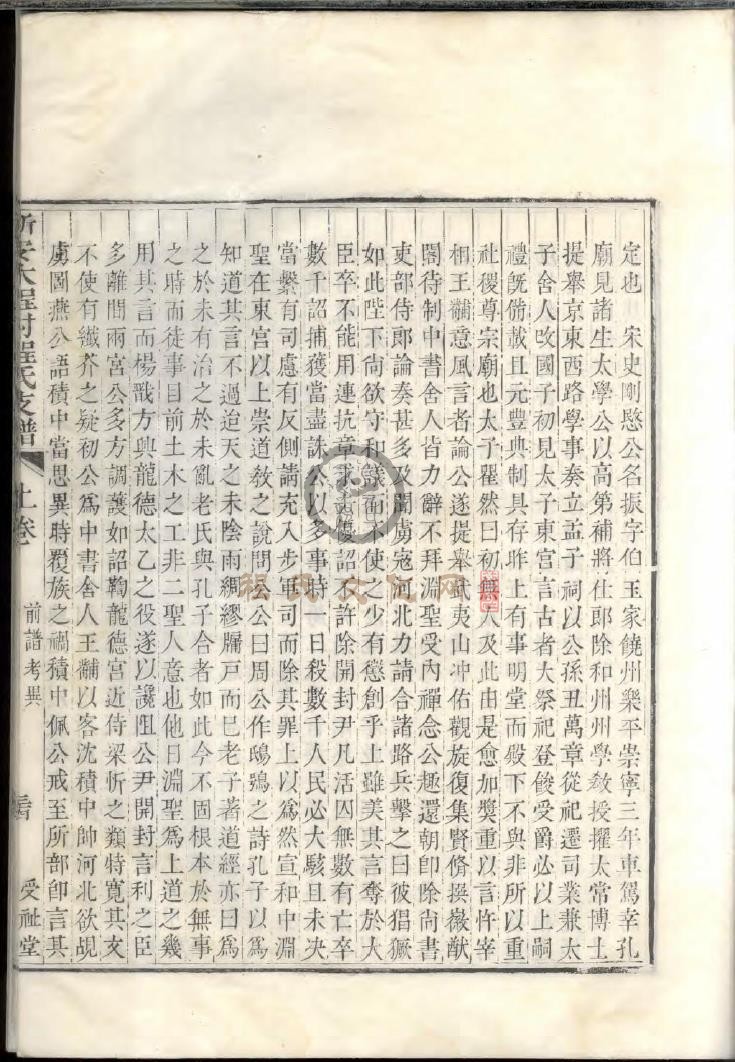 定也　宋史剛愍公名振字伯玉家饒州樂平崇寧三年車駕幸孔
廟見諸生太學公以高第補將仕郎除和州州學敎授擢太常博士
提舉京東西路學事奏立孟子祠以公孫丑萬章從祀遷司業兼太
子舍人攺國子初見太子東宮言古者大祭祀登餕受爵必以上嗣
禮旣俻載且元豐典制具存昨上有事明堂而殿下不與非所以重
社稷尊宗廟也太子瞿然曰初無人及此由是愈加奬重以言忤宰
相王黼意風言者論公遂提舉武夷山冲佑觀旋復集賢脩撰徽猷
閣待制中書舍人皆力辭不拜淵聖受內禪念公趣還朝卽除尚書
吏部侍郎論奏甚多及聞虜寇河北力請合諸路兵擊之曰彼猖獗
如此陛下尙欲守和議而不使之少有懲創乎上雖美其言奪於大
臣卒不能用連抗章優詔不許除開封尹凡活囚無數有亡卒
數千詔捕獲當盡誅以多事時一日殺數千人民必大駭且未决
當繫有司慮有反側請充入步軍司而除其罪上以爲然宣和中淵
聖在東宮以上崇道敎之說問公公曰周公作鴟鴞之詩孔子以爲
知道其言不過迨天之未陰雨綢繆牖戸而巳老子著道經亦曰爲
之於未有治之於未亂老氏與孔子合者如此今不固根本於無事
之時而徒事目前土木之工非二聖人意也他日淵聖爲上道之幾
用其言而楊戩方興龍德太乙之役遂以讒阻公尹開封言利之臣
多離間兩宮公多方調護如詔鞫龍德宮近侍梁忻之類特寬其支
不使有纖芥之疑初公爲中書舍人王黼以客沈積中帥河北欲覘
虜圖燕公語積中當思異時覆族之禍積中佩公戒至所部卽言其
新安大程村程氏支譜
上卷
前譜考異
受祉堂
程氏文化网